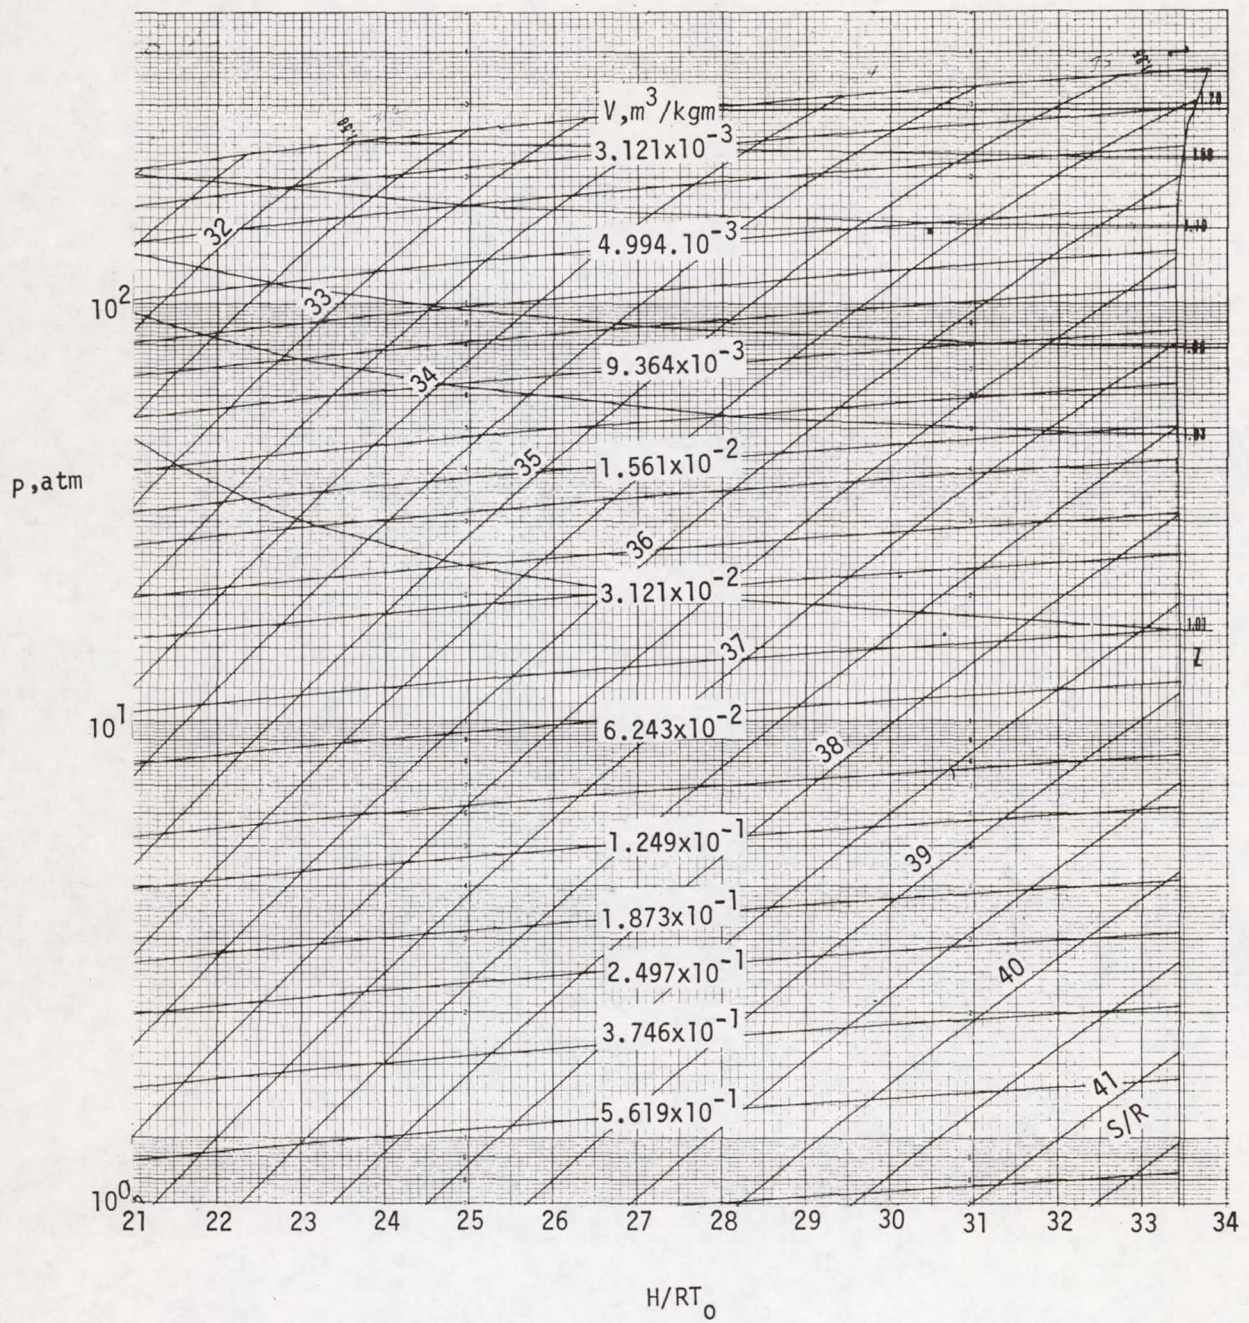 V,m³/kgm
3.121x10⁻³
4.994.10⁻³
9.364x10⁻³
1.561x10⁻²
3.121x10⁻²
6.243x10⁻²
1.249x10⁻¹
1.873x10⁻¹
2.497x10⁻¹
3.746x10⁻¹
5.619x10⁻¹
32
33
34
35
36
37
38
39
40
41
S/R
1.20
1.10
1.03
1.01
Z
p,atm
10²
10¹
10⁰
21 22 23 24 25 26 27 28 29 30 31 32 33 34
H/RT₀